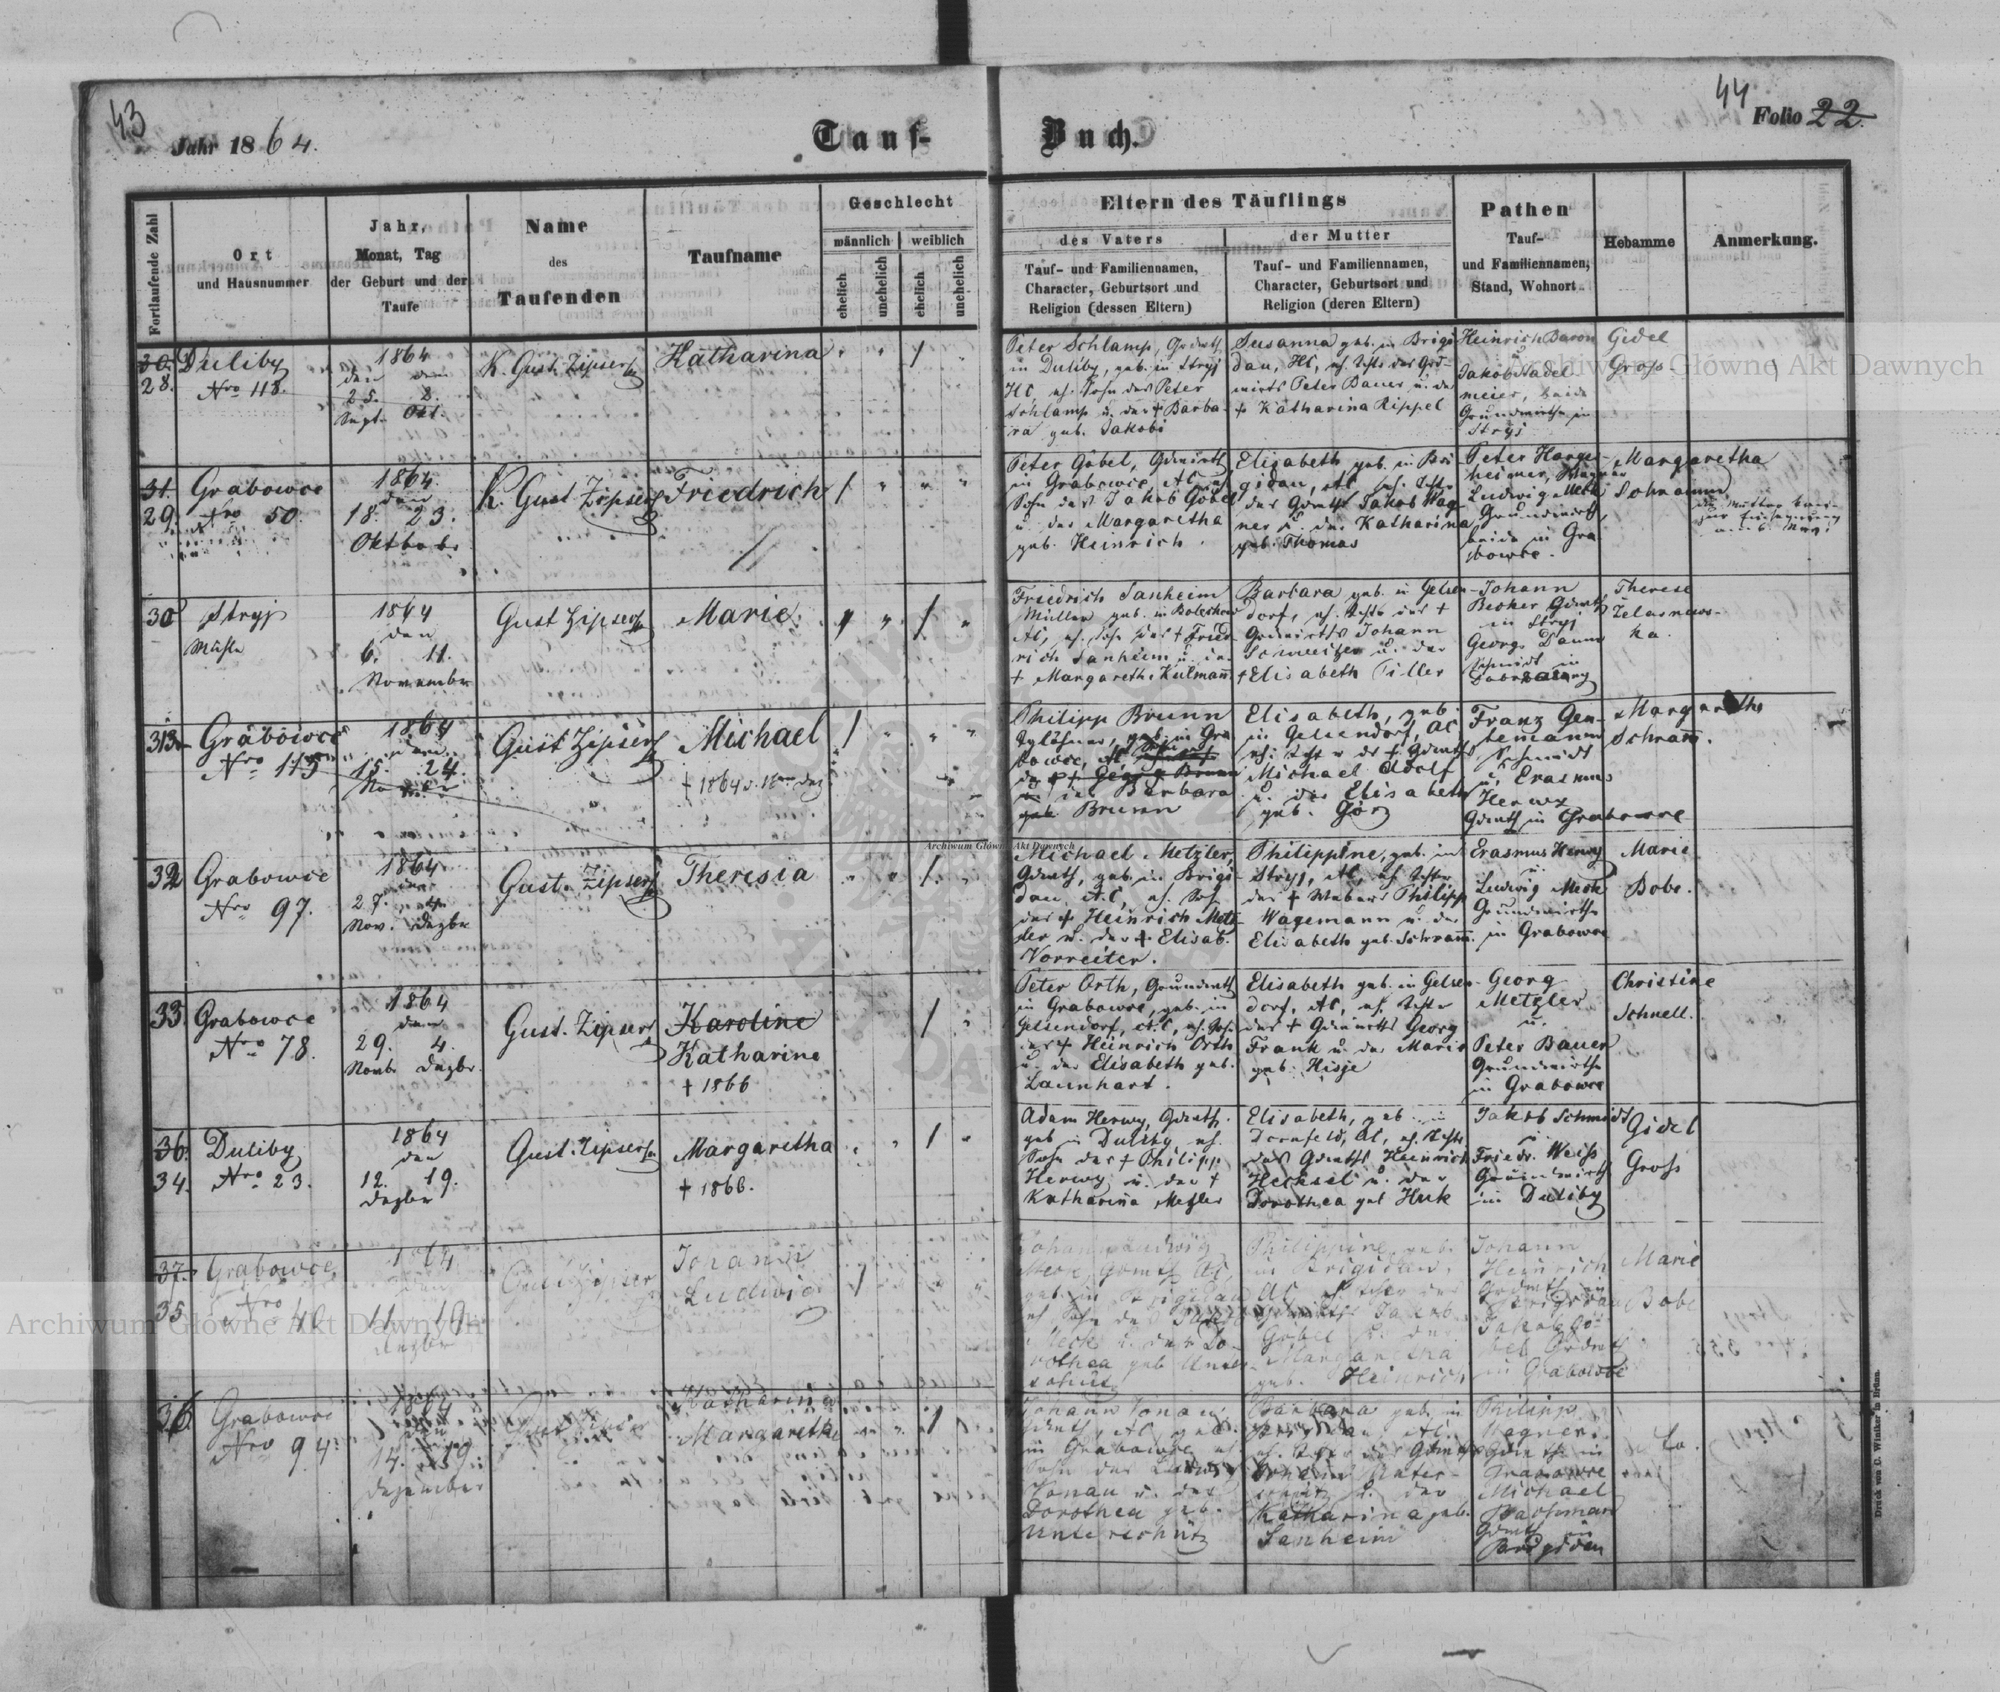 43
44
Jahr 1864.
Tauf-Buch.
Folio 22.
Fortlaufende Zahl
Ort
und Hausnummer
Jahr,
Monat, Tag
der Geburt und der
Taufe
Name
des
Taufenden
Taufname
Geschlecht
männlich
weiblich
ehelich
unehelich
ehelich
unehelich
Eltern des Täuflings
des Vaters
Tauf- und Familiennamen,
Character, Geburtsort und
Religion (dessen Eltern)
der Mutter
Tauf- und Familiennamen,
Character, Geburtsort und
Religion (deren Eltern)
Pathen
Tauf-
und Familiennamen,
Stand, Wohnort
Hebamme
Anmerkung.
30.
28.
Duliby
Nro 118.
1864
den den
25. 2.
Sept. Okt.
K. Gust. Zipser
Katharina
Peter Schlamp, Grdwth
in Duliby, geb. in Stryj
HC, eh. Sohn des Peter
Schlamp u. der + Barba-
ra geb. Jakobi
Susanna geb. in Brigi
dau, HC, eh. Tchtr des Grd-
wirts Peter Bauer u. der
+ Katharina Rippel
Heinrich Baron
u.
Jakob Stadel
meier, beide
Grundwirthe in
Stryj
Gidel
Gross
31.
29.
Grabowce
Nro 50.
1864.
den
18. 23.
Oktober
K. Gust Zipser
Friedrich
Peter Göbel, Grdwirth
in Grabowce, AC, eh
Sohn des Jakob Göbel
u. der Margaretha
geb. Heinrich.
Elisabeth, geb. in Bri
gidau, AC, eh. Tchtr
des Grdwths Jakob Wag-
ner u. der Katharina
geb. Thomas
Peter Harge
heimer, Wagner
Ludwig Meck
Grundwirth,
beide in Gra
bowce.
Margaretha
Schramm
30
Stryj
Mühle
1864
den
6. 11.
November
Gust Zipser
Marie
Friedrich Sanheim
Müller geb. in Bolechow
AC, eh. Sohn des + Fried-
rich Sanheim u. der
+ Margareth. Kulmann
Barbara geb. in Gelsen-
dorf, eh. Tchtr des +
Grdwirths Johann
Schweitzer u. der
+ Elisabeth Tiller
Johann
Becker Grdwth
in Stryj
Georg Daum
Schmidt in
Therese
Zelasnews-
ka.
313.
Grabowce
Nro 115
1864
den
15. 24.
Gust Zipser
Michael
+ 1864
Philipp Brunn
Taglöhner, geb. in Gra
bowce, AC
der + Georg Brunn
Barbara
geb. Brunn
Elisabeth, geb.
in Gelsendorf, AC
eh. Tchtr des + Grdwths
Michael Adolf
u. der Elisabeth
geb. Görz
Franz Gen-
temann
Schmidt
u. Erasmus
Herwy
Grdwth in Grabowce
Margaretha
Schramm.
32
Grabowce
Nro 97.
1864
den
27. 4.
Nov. Dezbr
Gust. Zipser
Theresia
Michael Metzler,
Grdwth, geb. in Brigi-
dau, AC, eh. Sohn
des + Heinrich Metz-
ler u. der + Elisab.
Vorreiter.
Philippine, geb. in
Stryj, AC, eh. Tchtr
des + Webers Philipp
Wagemann u. der
Elisabeth geb. Schramm.
Erasmus Herwy
u.
Ludwig Meck
Grundwirthe
in Grabowce
Marie
Bobe.
33.
Grabowce
Nro 78.
1864
den
29. 4.
Novb. Dezbr.
Gust. Zipser
Karoline
Katharine
+ 1866
Peter Orth, Grundwirth
in Grabowce, geb. in
Gelsendorf, AC, eh. Sohn
des + Heinrich Orth
u. der Elisabeth geb.
Launhart.
Elisabeth geb. in Gelsen-
dorf, AC, eh. Tchtr
des + Grdwirths Georg
Frank u. der Marie
geb. Hisje
Georg
Metzler
u.
Peter Bauer
Grundwirthe
in Grabowce
Christine
Schnell.
36.
34.
Duliby
Nro 23.
1864
den
12. 19.
Dezbr
Gust. Zipser
Margaretha
+ 1866.
Adam Herwy, Grdwth,
geb in Duliby, eh.
Sohn des + Philipp
Herwy u. der +
Katharina Mezler
Elisabeth, geb. in
Dornfeld, AC, eh. Tchtr
des Grdwths Heinrich
Hechsel u. der
Dorothea geb Huk
Jakob Schmidt
u.
Friedr. Weiss
Grundwirth
in Duliby
Gidel
Gross
37.
35.
Grabowce
Nro 40
1864
den
11. 19.
Dezbr
Gust Zipser
Johann
Ludwig
Johann Ludwig
Meck, Grdwth, AC,
geb. in Brigidau
eh Sohn des
Meck u. der Do-
rothea geb Unter-
schütz
Philippine geb.
in Brigidau,
AC, eh. Tchter des
Grdwirths Jakob
Göbel u. der
Margaretha
geb. Heinrich
Johann
Heinrich
Grdwth in
Brigidau
Jakob Gö-
bel Grdwth
in Grabowce
Marie
Bobe
36
Grabowce
Nro 94.
1864
den
14. 19.
Dezember
Gust Zipser
Katharina
Margaretha
Johann Jonau,
Grdwth, AC geb.
in Grabowce, eh.
Sohn des Ludwig
Jonau u. der
Dorothea geb.
Unterschütz
Barbara geb. in
Brigidau, AC.
eh. Tchter des Grdwths
Johann Unter-
schütz u. der
Katharina geb.
Sanheim
Philipp
Wagner,
Grdwth in
Grabowce
Michael
Bachman
Grdwth in
Brigidau
Archiwum Główne Akt Dawnych
Archiwum Główne Akt Dawnych
Archiwum Główne Akt Dawnych
Druck von C. Winiker in Brünn.